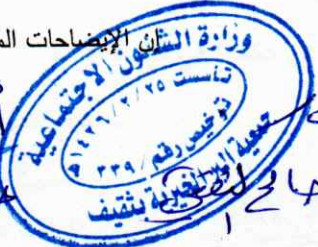 إن الإيضاحات
وزارة الشئون الاجتماعية
تأسست ١٤٢٦/٢/٢٥
ترخيص رقم / ٣٣٩
جمعية البر الخيرية بثقيف